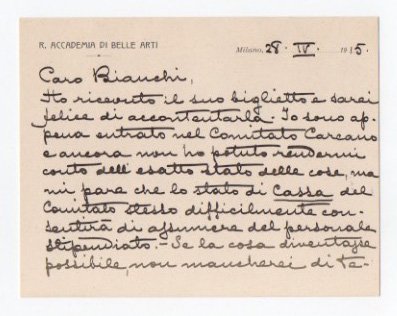 R. ACCADEMIA DI BELLE ARTI
Milano, 28. IV. 1915.
Caro Bianchi,
Ho ricevuto il suo biglietto e sarei
felice di accontentarla. Io sono ap-
pena entrato nel Comitato Carcano
e ancora non ho potuto rendermi
conto dell' esatto stato delle cose, ma
mi pare che lo stato di Cassa del
Comitato stesso difficilmente con-
sentirà di assumere del personale
stipendiato. - Se la cosa diventasse
possibile, non mancherei di te-